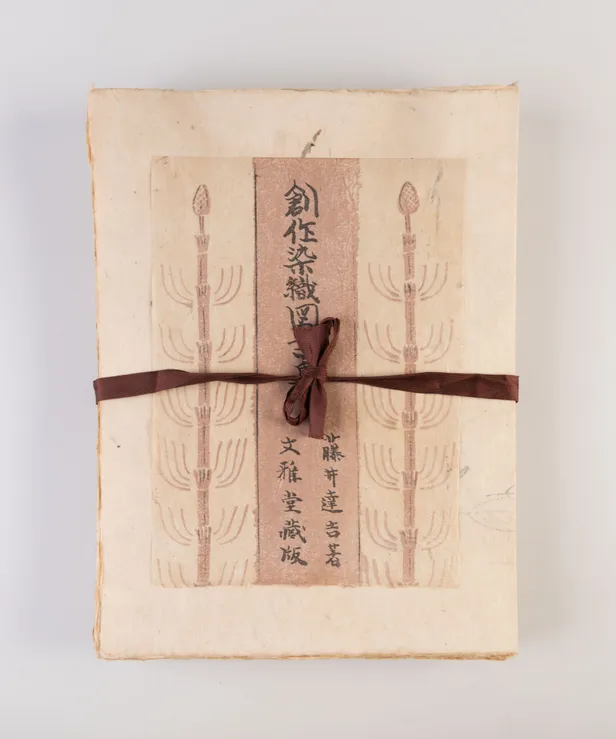 創作染織図
藤井達吉著
文雅堂藏版